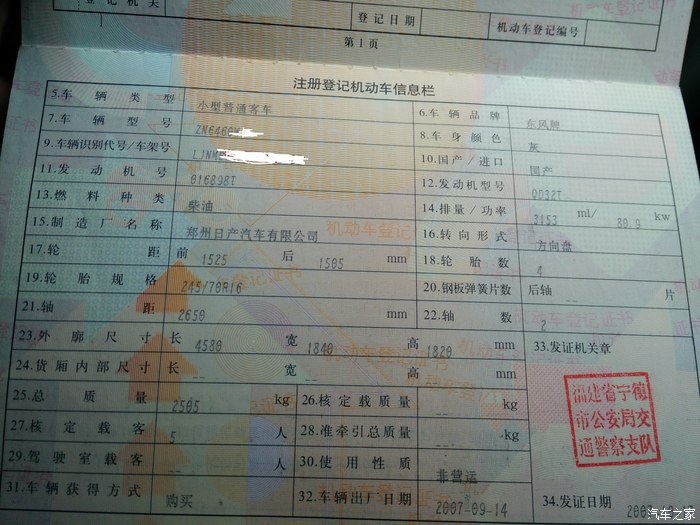 登记机关
登记日期
机动车登记编号
第1页
注册登记机动车信息栏
5.车辆类型 小型普通客车 6.车辆品牌 东风牌
7.车辆型号 ZN6460 8.车身颜色 灰
9.车辆识别代号/车架号 LJNM 10.国产/进口 国产
11.发动机号 016898T 12.发动机型号 QD32T
13.燃料种类 柴油 14.排量/功率 3153 ml/ 80.9 kw
15.制造厂名称 郑州日产汽车有限公司 16.转向形式 方向盘
17.轮距 前 1525 后 1505 mm 18.轮胎数 4
19.轮胎规格 245/70R16 20.钢板弹簧片数 后轴 -- 片
21.轴距 2650 mm 22.轴数 2
23.外廓尺寸 长 4580 宽 1840 高 1820 mm 33.发证机关章
24.货厢内部尺寸 长 -- 宽 -- 高 -- mm
25.总质量 2505 kg 26.核定载质量 -- kg
27.核定载客 5 人 28.准牵引总质量 -- kg
29.驾驶室载客 -- 人 30.使用性质 非营运
31.车辆获得方式 购买 32.车辆出厂日期 2007-09-14 34.发证日期 200
福建省宁德
市公安局交
通警察支队
汽车之家